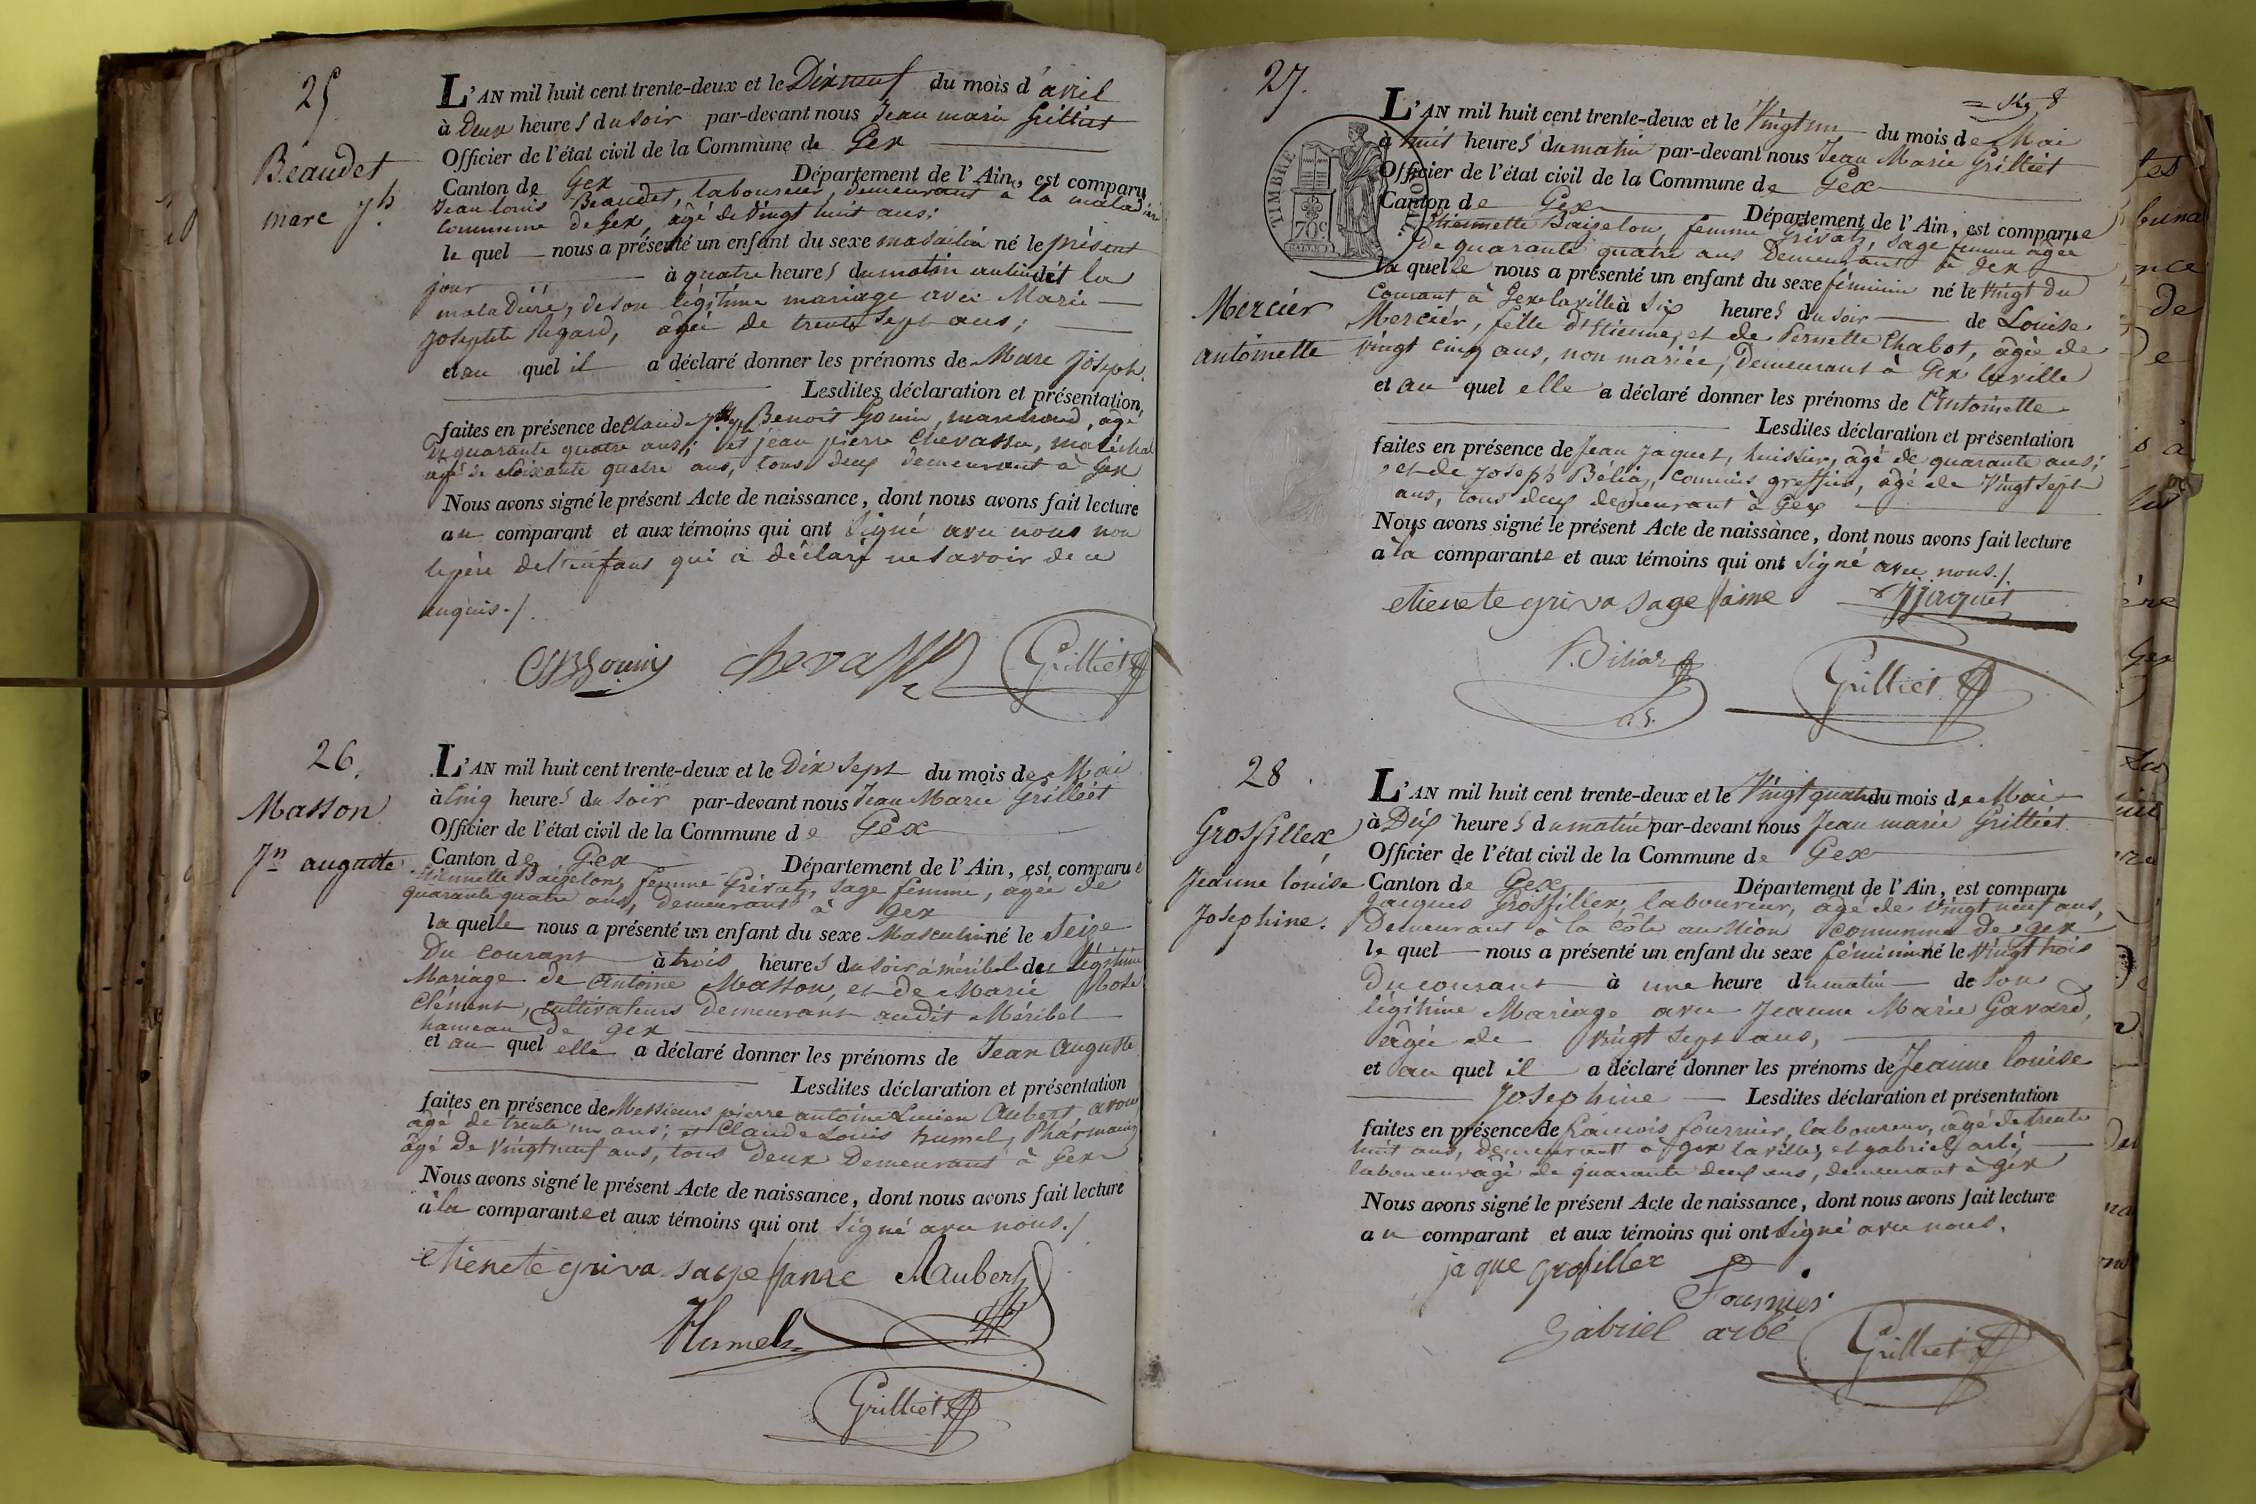 25
Béaudet
marc jh.
L'AN mil huit cent trente-deux et le Dixneuf du mois d'avril
à Deux heures du soir par-devant nous Jean marie Grilliet
Officier de l'état civil de la Commune de Gex
Canton de Gex Département de l'Ain, est comparu
Jean louis Beaudet, laboureur, demeurant à la maladière
commune de Gex, âgé de vingt huit ans;
le quel nous a présenté un enfant du sexe masculin né le présent
jour à quatre heures du matin audit la
maladière, de son légitime mariage avec Marie
Josephte Regard, âgée de trente sept ans;
et au quel il a déclaré donner les prénoms de Marc Joseph.
Lesdites déclaration et présentation,
faites en présence de Claude Benoit Gouin, marchand, âgé
De quarante quatre ans; et jean pierre Chevassu, maréchal
âgé de soixante quatre ans, tous deux demeurant à Gex
Nous avons signé le présent Acte de naissance, dont nous avons fait lecture
au comparant et aux témoins qui ont signé avec nous non
le père de l'enfant qui a déclaré ne savoir de ce
enquis./.
Gouin Chevassu Grilliet
26.
Masson
Jn auguste
L'AN mil huit cent trente-deux et le Dix sept du mois de Mai
à Cinq heures du soir par-devant nous Jean Marie Grilliet
Officier de l'état civil de la Commune de Gex
Canton de Gex Département de l'Ain, est comparue
Etiennette Baigelon, femme Grivat, sage femme, agée de
quarante quatre ans, demeurant à Gex
la quelle nous a présenté un enfant du sexe Masculin né le Seize
Du courant à trois heures du soir à méribel du légitime
Mariage de Antoine Masson, et de Marie Rose
Clément, cultivateurs Demeurant audit Méribel
hameau de gex
et au quel elle a déclaré donner les prénoms de Jean Auguste
Lesdites déclaration et présentation
faites en présence de Messieurs pierre antoine Lucien Aubert, avoué
âgé de trente un ans; et Claude Louis humel, Pharmacien
âgé De vingt neuf ans, tous Deux Demeurant à Gex
Nous avons signé le présent Acte de naissance, dont nous avons fait lecture
à la comparante et aux témoins qui ont signé avec nous./
etienete griva sage fame Aubert
Humel
Grilliet
27.
Mercier
antoinette
TIMBRE ROYAL.
70c
L'AN mil huit cent trente-deux et le Vingt un du mois de Mai
à huit heures du matin par-devant nous Jean Marie Grilliet
Officier de l'état civil de la Commune de Gex
Canton de Gex Département de l'Ain, est comparue
Etiennette Baigelon, femme Grivat, sage femme âgée
de quarante quatre ans Demeurant à Gex
la quelle nous a présenté un enfant du sexe féminin né le vingt du
Courant à Gex la ville à six heures du soir de Louise
Mercier, fille d'Etienne, et de Pernette Chabot, âgée de
vingt cinq ans, non mariée, Demeurant à Gex la ville
et au quel elle a déclaré donner les prénoms de Antoinette
Lesdites déclaration et présentation
faites en présence de Jean Jaquet, huissier, âgé de quarante ans;
et de Joseph Béliar, commis greffier, âgé de Vingt sept
ans, tous deux demeurant à Gex
Nous avons signé le présent Acte de naissance, dont nous avons fait lecture
à la comparante et aux témoins qui ont signé avec nous./.
etienete griva sage fame Jaquet
Béliar
Grilliet
28.
Grosfillex,
Jeanne louise
Josephine.
L'AN mil huit cent trente-deux et le Vingt quatre du mois de Mai
à Dix heures du matin par-devant nous Jean marie Grilliet
Officier de l'état civil de la Commune de Gex
Canton de Gex Département de l'Ain, est comparu
Jacques Grosfillex, laboureur, agé de vingt neuf ans,
Demeurant à la Côte au Commune de gex
le quel nous a présenté un enfant du sexe féminin né le vingt trois
Du courant à une heure du matin de Son
légitime Mariage avec Jeanne Marie Gavard,
âgée de vingt sept ans,
et au quel il a déclaré donner les prénoms de Jeanne louise
Josephine Lesdites déclaration et présentation
faites en présence de françois fournier, laboureur, agé de trente
huit ans, demeurant à gex la ville, et gabriel arbé,
laboureur âgé de quarante deux ans, demeurant à gex
Nous avons signé le présent Acte de naissance, dont nous avons fait lecture
au comparant et aux témoins qui ont signé avec nous.
jaque grosfillex
Fournier
Gabriel arbé
Grilliet